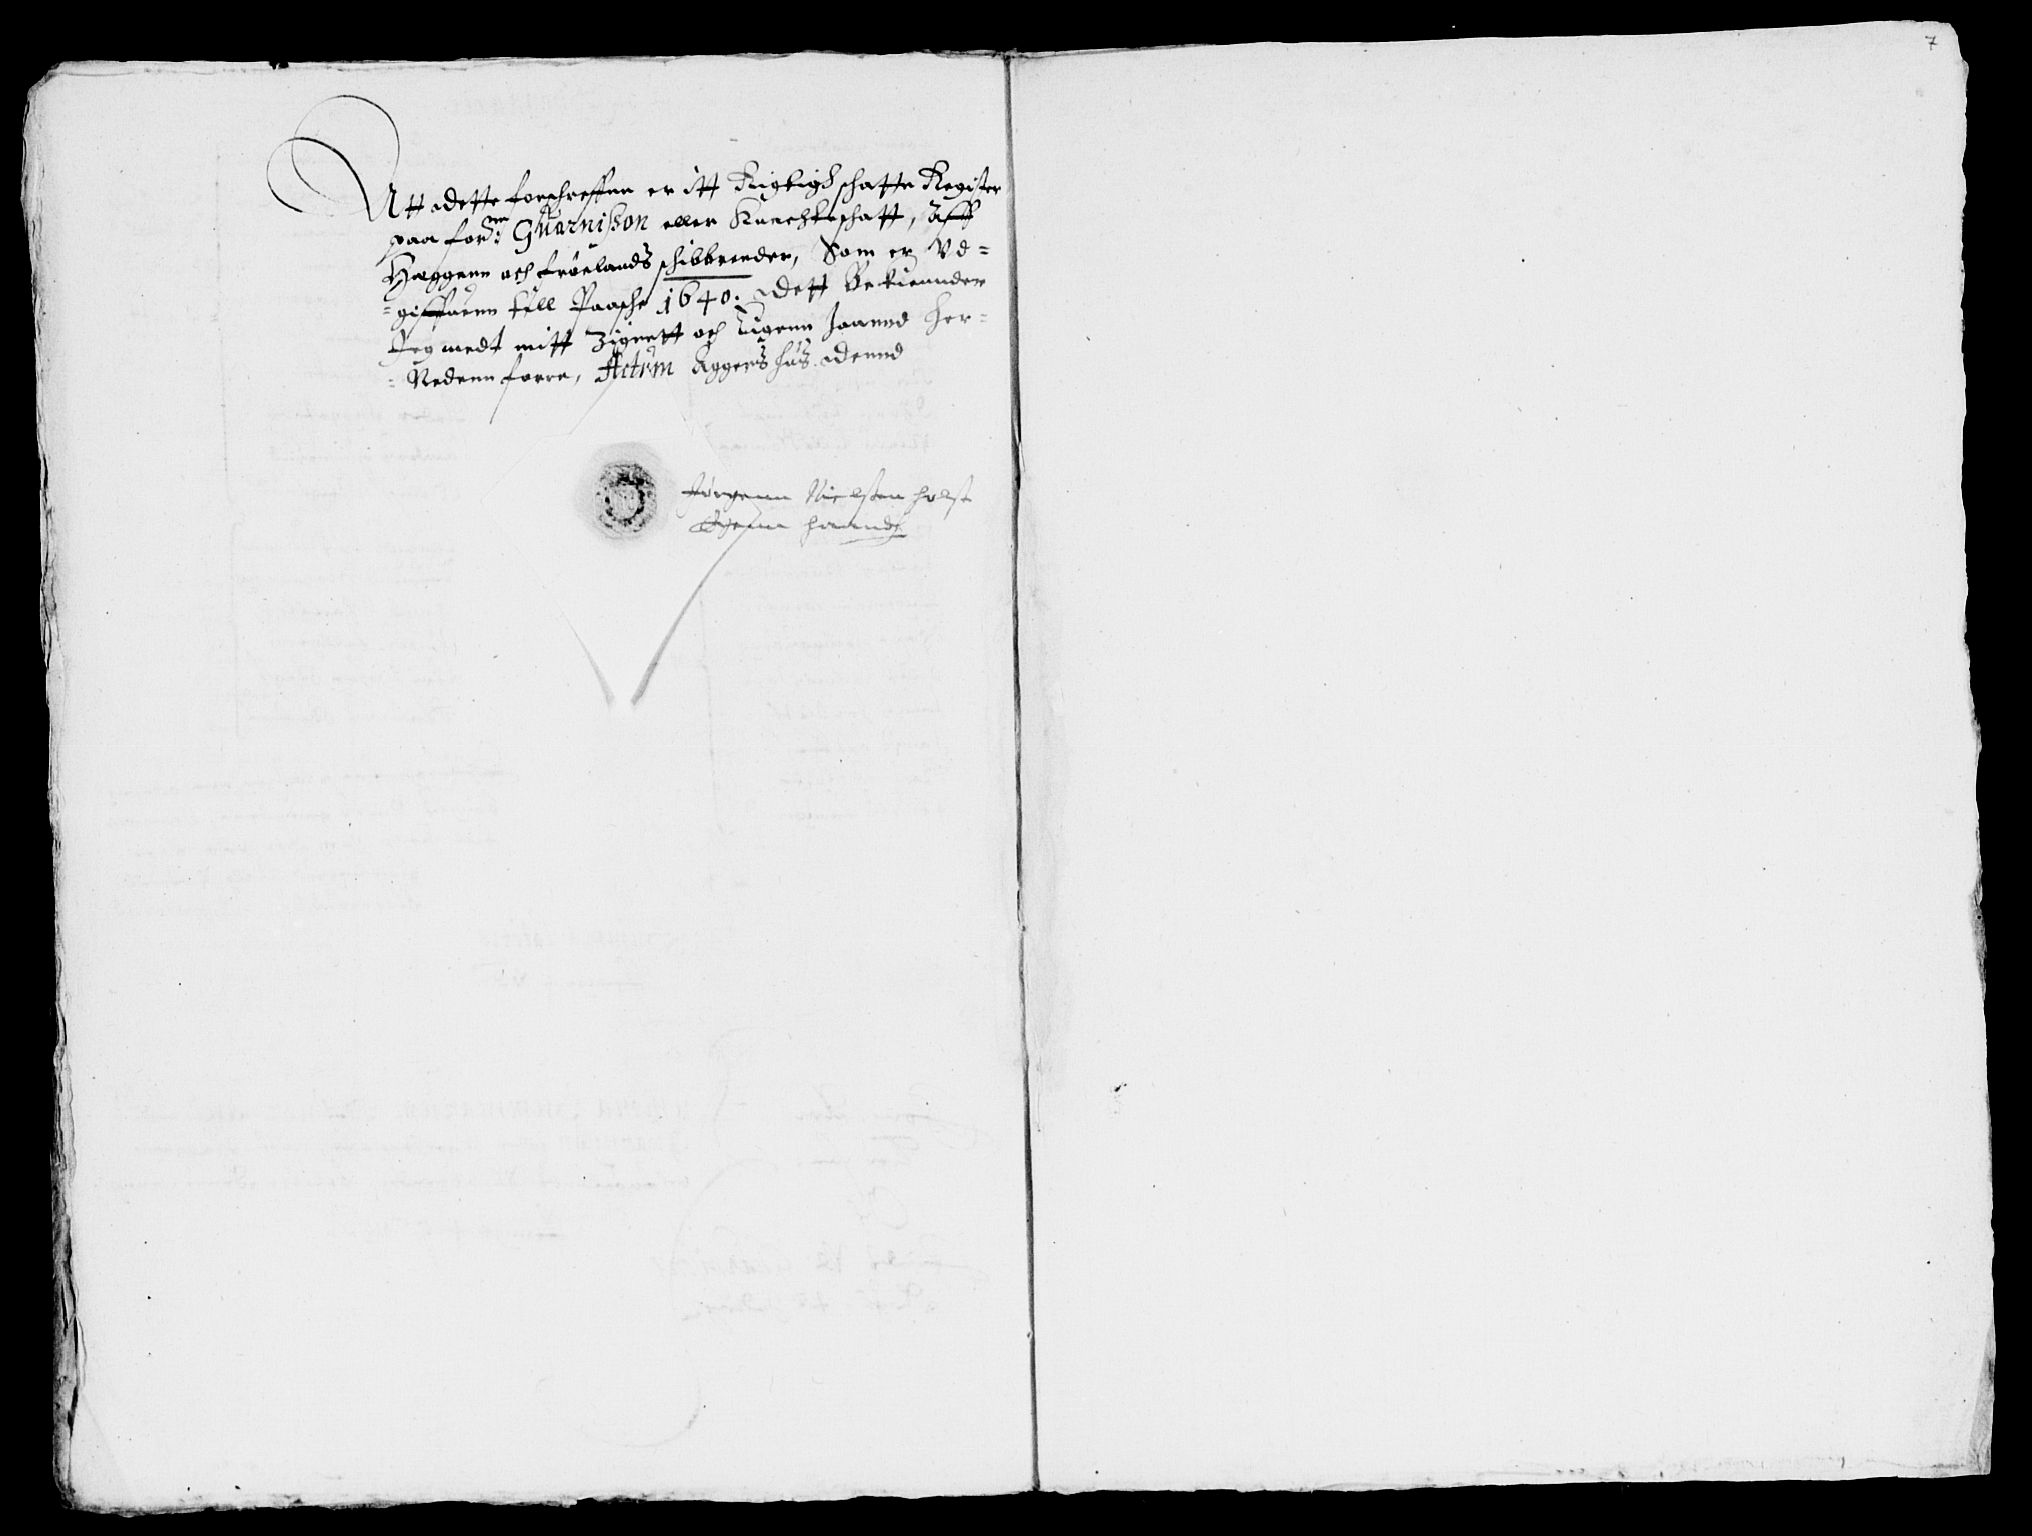 7
Att dette forschreffne er itt Rigtigh schatte Register
paa forne: Guarnisson eller Knechteschatt, Aff
Heggenn och Frøelands schibbreeder, Som er Vd=
=giffuenn till Paasche 1640. Dett Bekiennder
Jeg medt mitt Zignett och Eigenn Haannd her=
=Nedenn forre, Actum Aggerss huss. Dennd
Jørgenn Nielssen holst
Egenn haandt